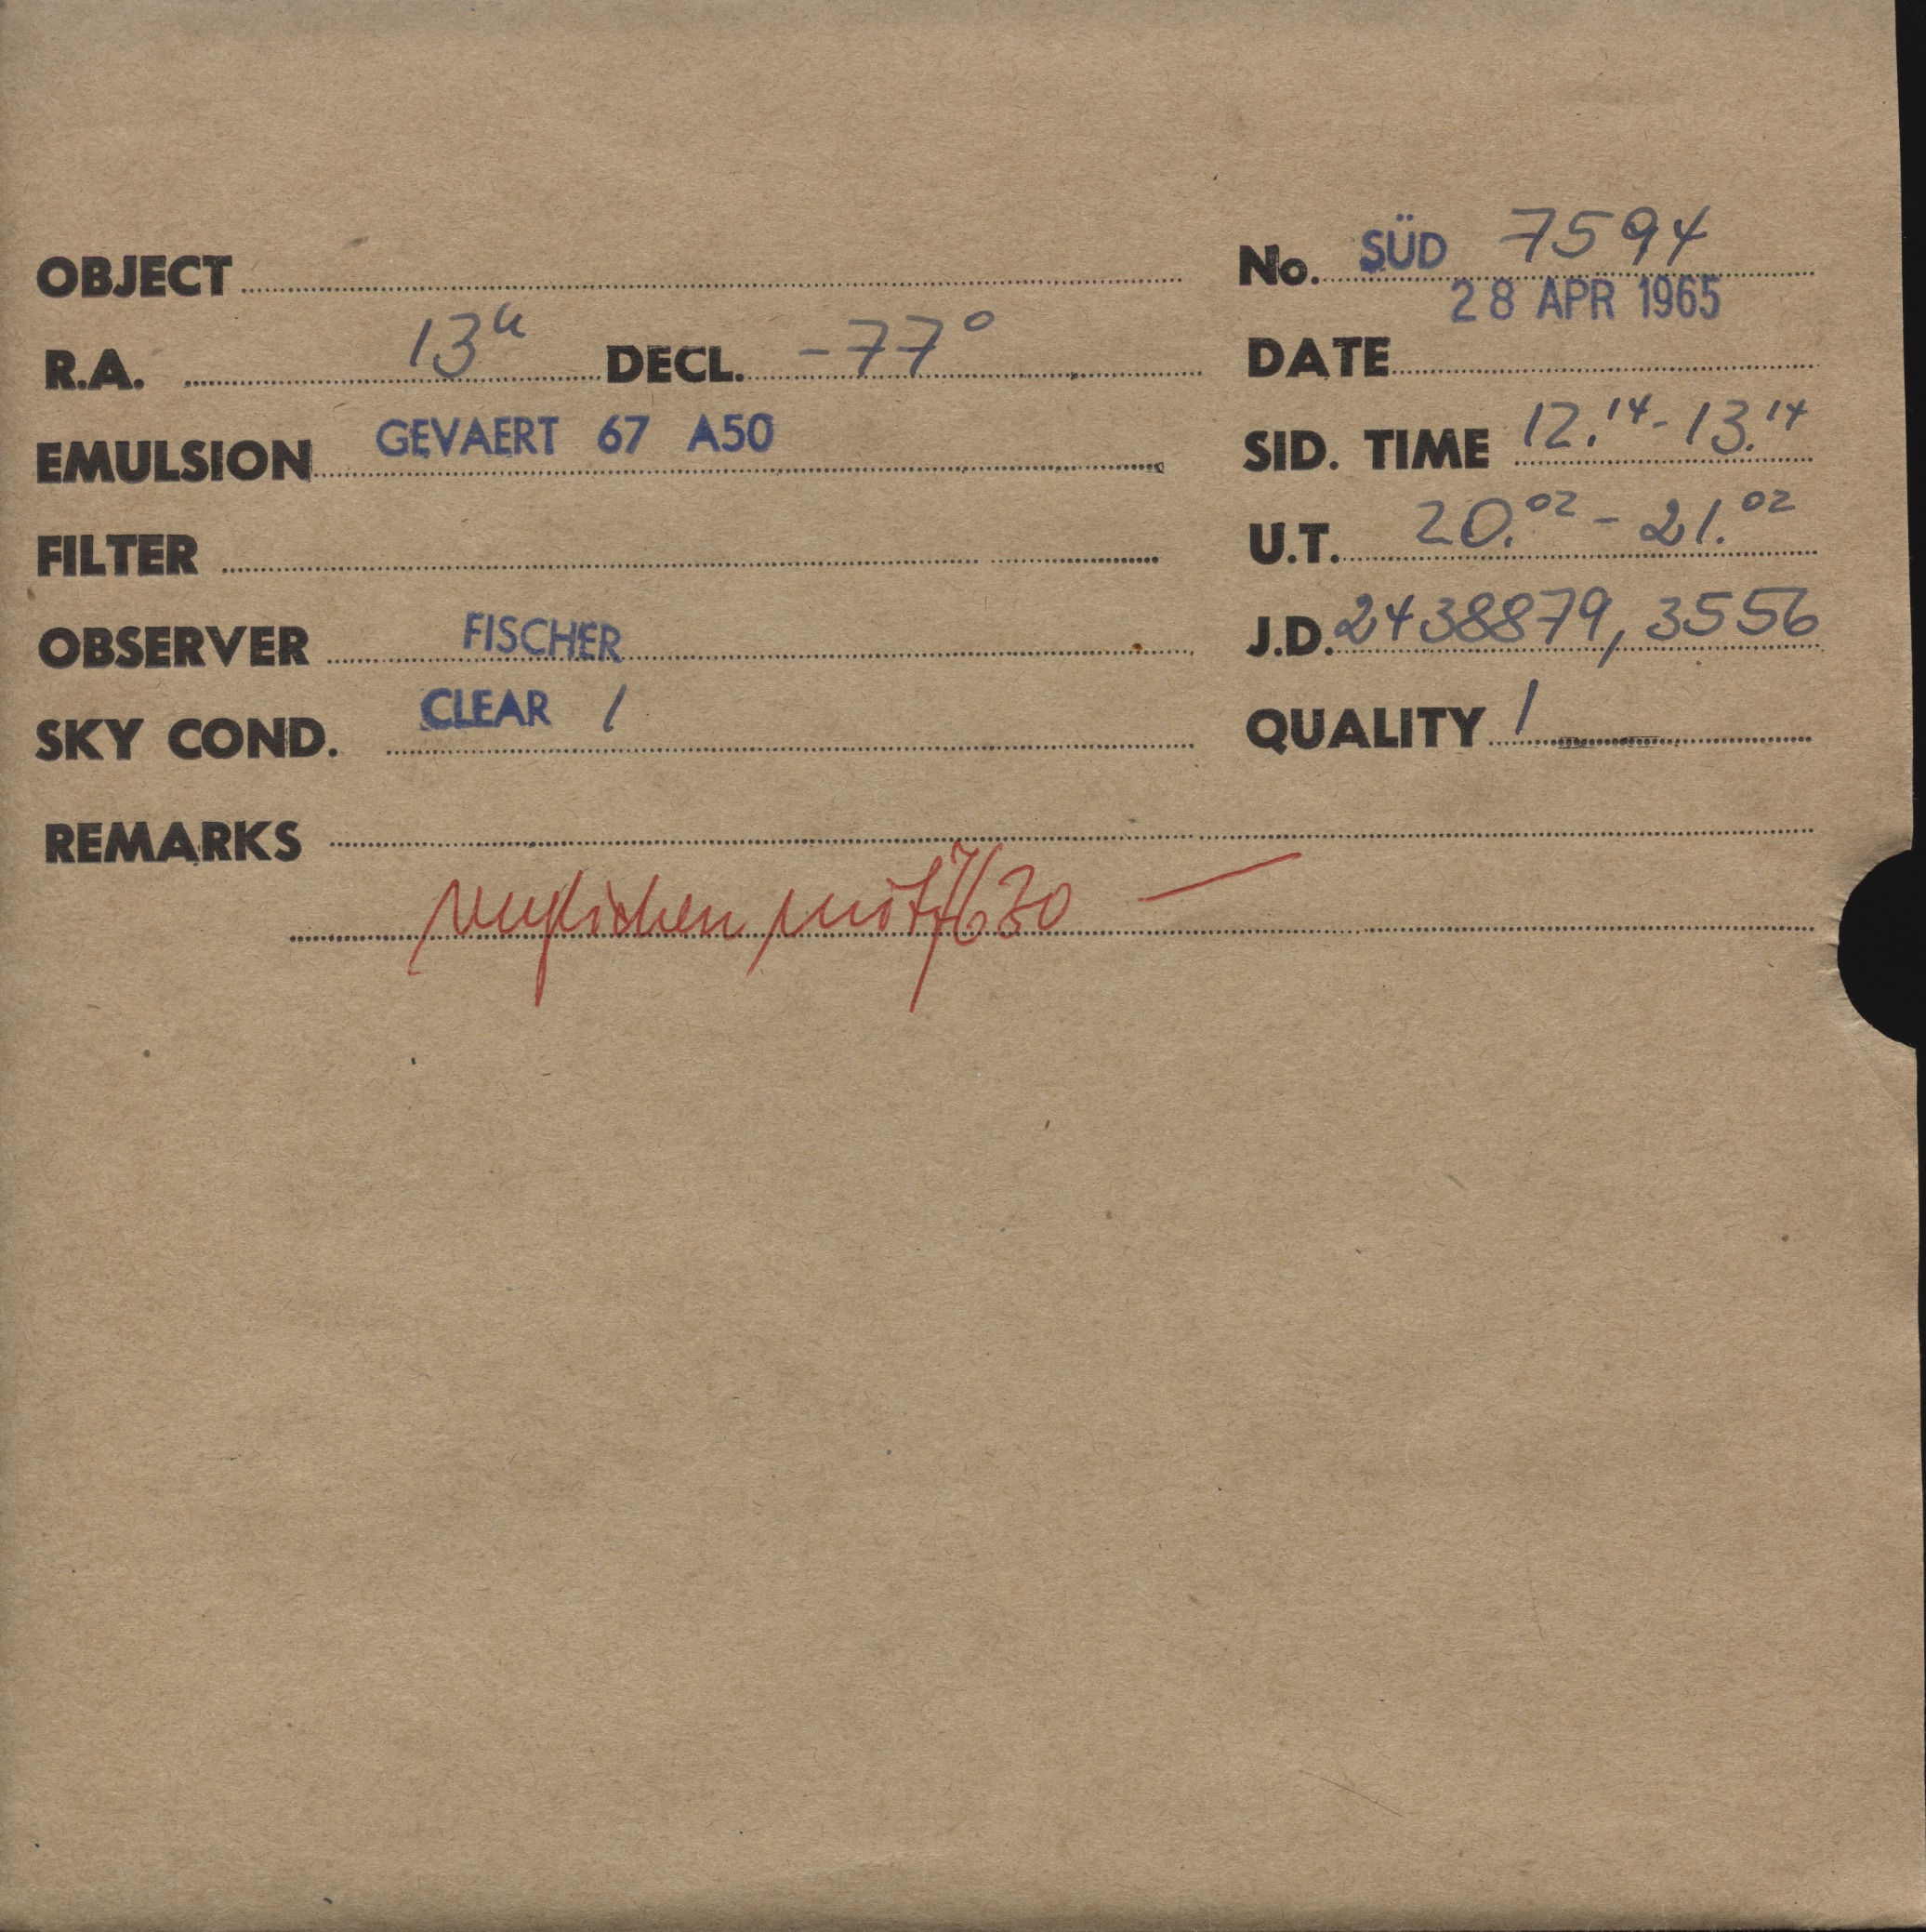 OBJECT
No. SÜD 7594
28 APR 1965
R.A. 13h DECL. -77°
DATE
EMULSION GEVAERT 67 A50
SID. TIME 12.14-13.14
FILTER
U.T. 20.02 - 21.02
OBSERVER FISCHER
J.D. 2438879,3556
SKY COND. CLEAR 1
QUALITY 1
REMARKS
verglichen mit 7630 —